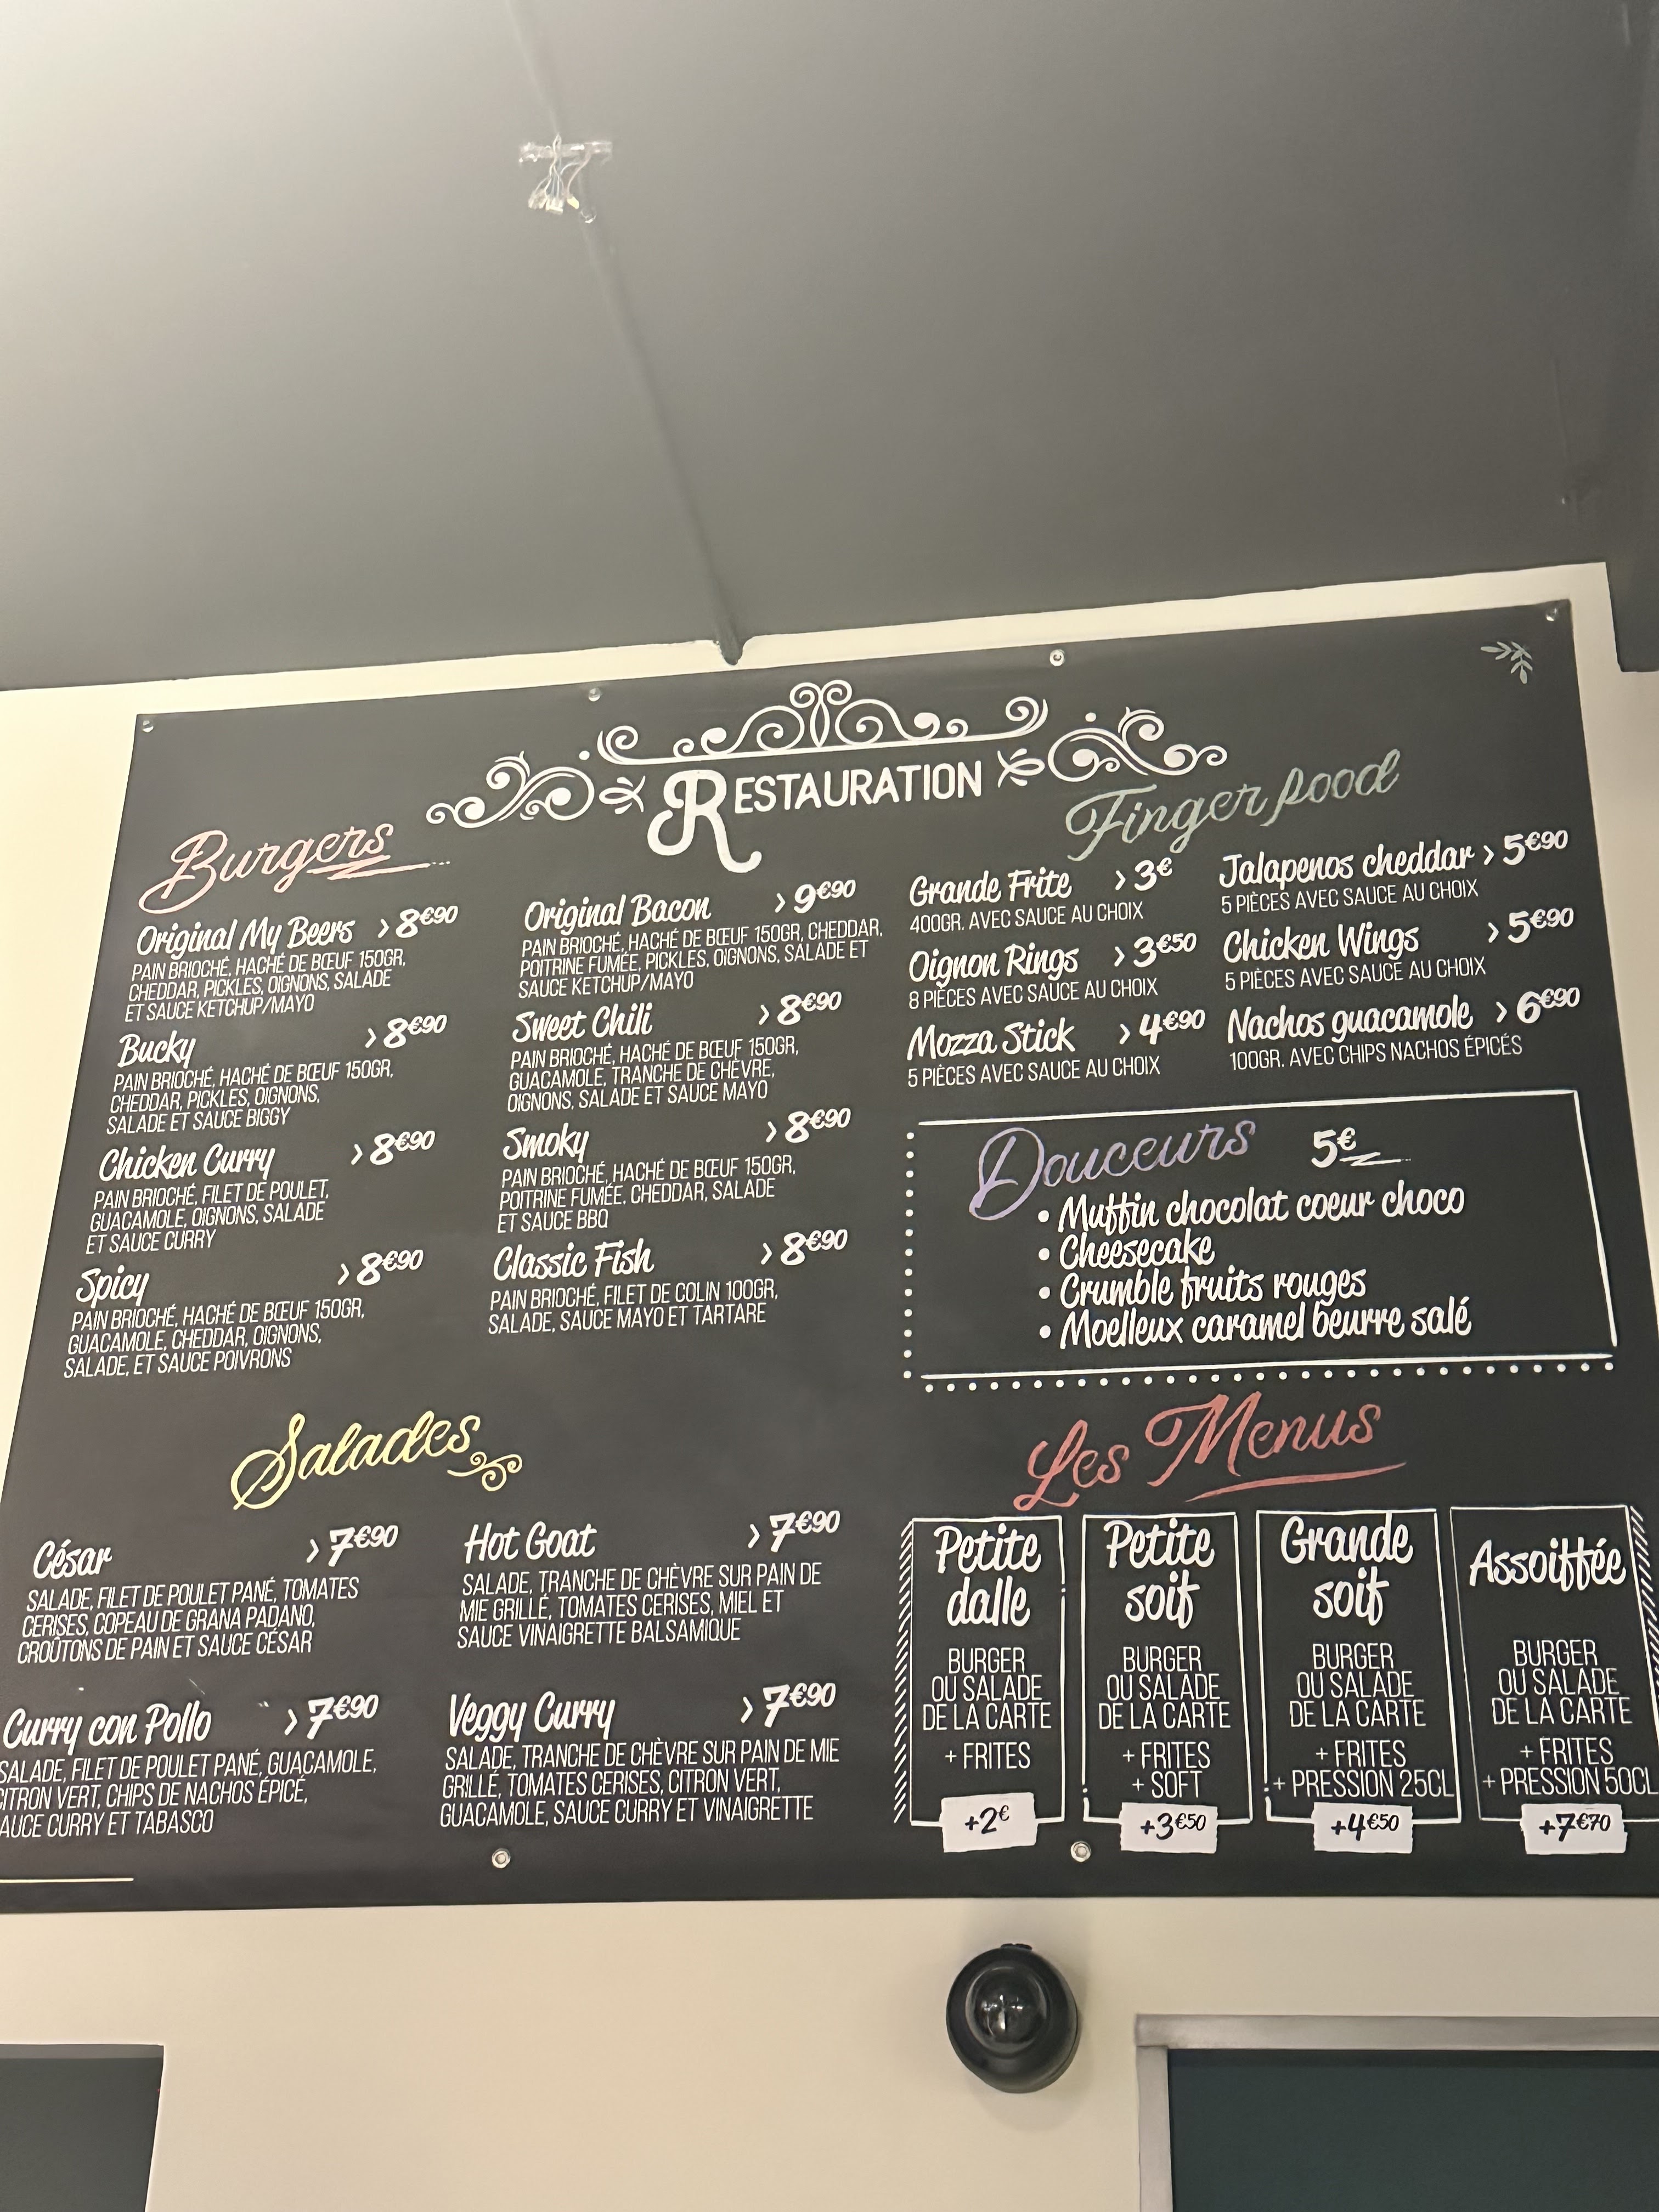 RESTAURATION
Burgers
Original My Beers > 8€90
PAIN BRIOCHÉ, HACHÉ DE BŒUF 150GR,
CHEDDAR, PICKLES, OIGNONS, SALADE
ET SAUCE KETCHUP/MAYO
Bucky > 8€90
PAIN BRIOCHÉ, HACHÉ DE BŒUF 150GR,
CHEDDAR, PICKLES, OIGNONS,
SALADE ET SAUCE BIGGY
Chicken Curry > 8€90
PAIN BRIOCHÉ, FILET DE POULET,
GUACAMOLE, OIGNONS, SALADE
ET SAUCE CURRY
Spicy > 8€90
PAIN BRIOCHÉ, HACHÉ DE BŒUF 150GR,
GUACAMOLE, CHEDDAR, OIGNONS,
SALADE, ET SAUCE POIVRONS
Original Bacon > 9€90
PAIN BRIOCHÉ, HACHÉ DE BŒUF 150GR, CHEDDAR,
POITRINE FUMÉE, PICKLES, OIGNONS, SALADE ET
SAUCE KETCHUP/MAYO
Sweet Chili > 8€90
PAIN BRIOCHÉ, HACHÉ DE BŒUF 150GR,
GUACAMOLE, TRANCHE DE CHÈVRE,
OIGNONS, SALADE ET SAUCE MAYO
Smoky > 8€90
PAIN BRIOCHÉ, HACHÉ DE BŒUF 150GR,
POITRINE FUMÉE, CHEDDAR, SALADE
ET SAUCE BBQ
Classic Fish > 8€90
PAIN BRIOCHÉ, FILET DE COLIN 100GR,
SALADE, SAUCE MAYO ET TARTARE
Finger food
Grande Frite > 3€
400GR. AVEC SAUCE AU CHOIX
Oignon Rings > 3€50
8 PIÈCES AVEC SAUCE AU CHOIX
Mozza Stick > 4€90
5 PIÈCES AVEC SAUCE AU CHOIX
Jalapenos cheddar > 5€90
5 PIÈCES AVEC SAUCE AU CHOIX
Chicken Wings > 5€90
5 PIÈCES AVEC SAUCE AU CHOIX
Nachos guacamole > 6€90
100GR. AVEC CHIPS NACHOS ÉPICÉS
Douceurs 5€
• Muffin chocolat coeur choco
• Cheesecake
• Crumble fruits rouges
• Moelleux caramel beurre salé
Salades
César > 7€90
SALADE, FILET DE POULET PANÉ, TOMATES
CERISES, COPEAU DE GRANA PADANO,
CROÛTONS DE PAIN ET SAUCE CÉSAR
Curry con Pollo > 7€90
SALADE, FILET DE POULET PANÉ, GUACAMOLE,
CITRON VERT, CHIPS DE NACHOS ÉPICÉ,
SAUCE CURRY ET TABASCO
Hot Goat > 7€90
SALADE, TRANCHE DE CHÈVRE SUR PAIN DE
MIE GRILLÉ, TOMATES CERISES, MIEL ET
SAUCE VINAIGRETTE BALSAMIQUE
Veggy Curry > 7€90
SALADE, TRANCHE DE CHÈVRE SUR PAIN DE MIE
GRILLÉ, TOMATES CERISES, CITRON VERT,
GUACAMOLE, SAUCE CURRY ET VINAIGRETTE
Les Menus
Petite
dalle
BURGER
OU SALADE
DE LA CARTE
+ FRITES
+2€
Petite
soif
BURGER
OU SALADE
DE LA CARTE
+ FRITES
+ SOFT
+3€50
Grande
soif
BURGER
OU SALADE
DE LA CARTE
+ FRITES
+ PRESSION 25CL
+4€50
Assoiffée
BURGER
OU SALADE
DE LA CARTE
+ FRITES
+ PRESSION 50CL
+7€70